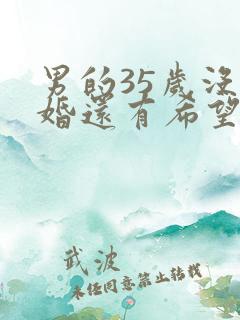 男的35歲沒
婚還有希望
武波
未经同意禁止转载